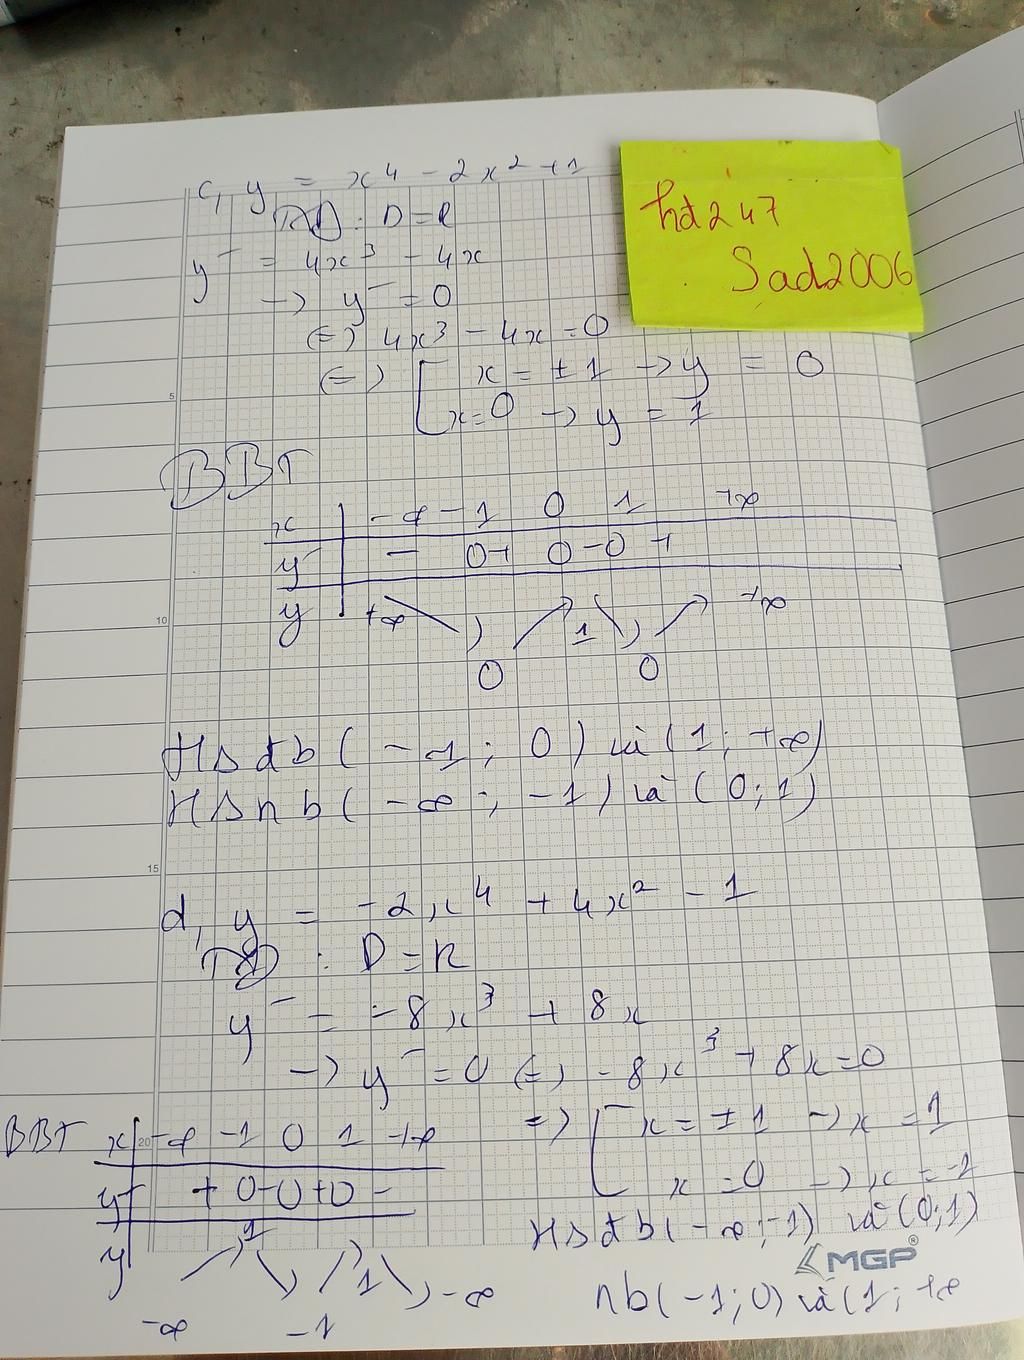 c, y = x⁴ - 2x² + 1
TXD : D = R
y' = 4x³ - 4x
→ y' = 0
⇔ 4x³ - 4x = 0
⇔ [ x = ±1 → y = 0
x = 0 → y = 1
hd247
Sad2006
BBT
x | -∞ -1 0 1 +∞
y' | - 0 + 0 - 0 +
y | +∞ ↘ 0 ↗ 1 ↘ 0 ↗ +∞
HS đb (-1; 0) và (1; +∞)
HS nb (-∞; -1) và (0; 1)
d, y = -2x⁴ + 4x² - 1
TXD : D = R
y' = -8x³ + 8x
→ y' = 0 ⇔ -8x³ + 8x = 0
⇒ [ x = ±1 → x = 1
x = 0 → x = -1
BBT x | -∞ -1 0 1 +∞
y' | + 0 - 0 + 0 -
y | -∞ ↗ 1 ↘ -1 ↗ 1 ↘ -∞
HS đb (-∞; -1) và (0; 1)
nb (-1; 0) và (1; +∞
MGP®
5
10
15
20